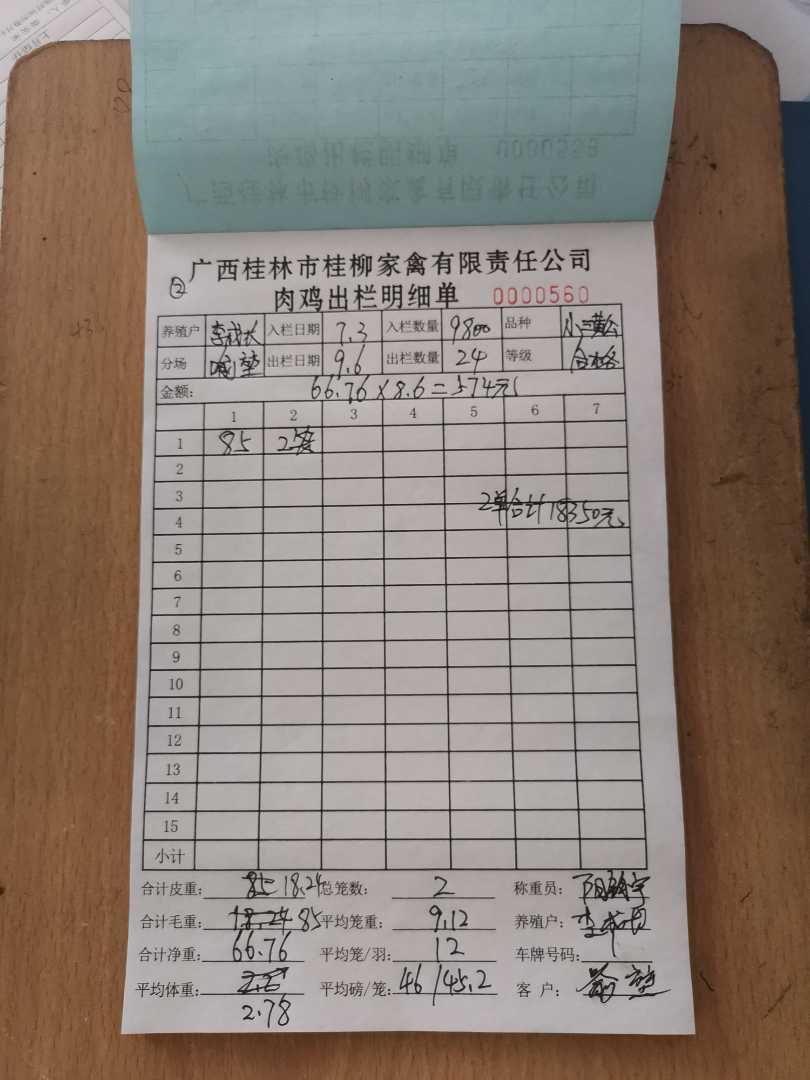 广西桂林市桂柳家禽有限责任公司
② 肉鸡出栏明细单 0000560
养殖户 李 入栏日期 7.3 入栏数量 9800 品种 小三黄公
分场 出栏日期 9.6 出栏数量 24 等级 合格
金额: 66.76×8.6=574元
1 2 3 4 5 6 7
1 85 2
2
3
2单合计18350元
4
5
6
7
8
9
10
11
12
13
14
15
小计
合计皮重: 85 18.24 总笼数: 2 称重员:
合计毛重: 18.24 85 平均笼重: 9.12 养殖户: 李
合计净重: 66.76 平均笼/羽: 12 车牌号码:
平均体重: 平均磅/笼: 46/45.2 客 户:
2.78